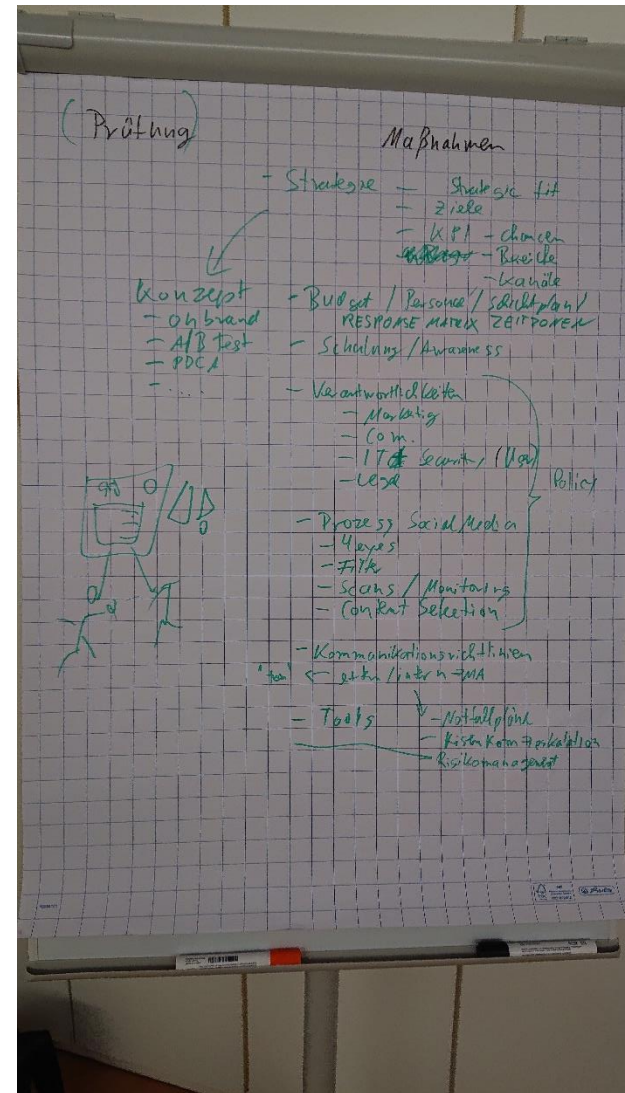 (Prüfung)
Maßnahmen
- Strategie - Strategic fit
- Ziele
- KPI - chancen
- Breiche
- Kanäle
Konzept
- on brand
- A/B test
- PDCA
- ....
- Budget / Personal / Schichtplan /
RESPONSE MATRIX ZEITZONEN
- Schulung / Awareness
- Verantwortlichkeiten
- Marketig
- Com.
- IT Security /
- Legal
Policy
- Prozess Social Media
- 4eyes
- Filter
- Scans / Monitoring
- Content Selection
- Kommunikationsrichtlinien
← extern / intern → MA
- Tools
- Notfallpläne
- Krisenkom → eskalation
- Risikomanagement